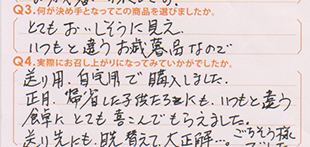 Q3.何が決め手となってこの商品を選びましたか。
とてもおいしそうに見え、
いつもと違うお歳暮品なので
Q4.実際にお召し上がりになってみていかがでしたか。
送り用、自宅用で購入しました。
正月、帰省した子供たちにも、いつもと違う
食卓にとても喜こんでもらえました。
送り先にも、目先替えて、大正解…。ごちそう様